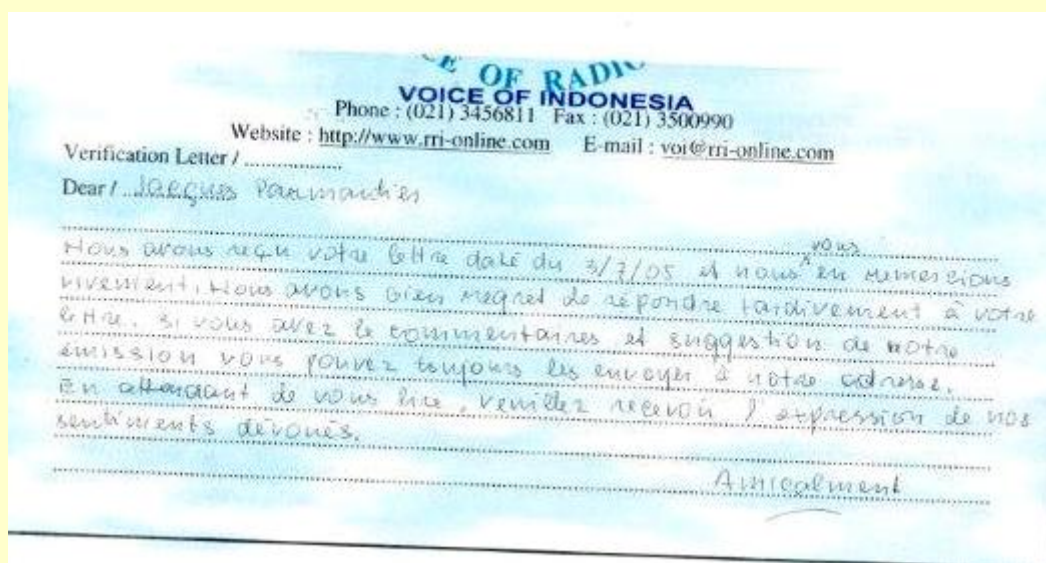 OF RADIO
VOICE OF INDONESIA
Phone : (021) 3456811 Fax : (021) 3500990
Website : http://www.rri-online.com E-mail : voi@rri-online.com
Verification Letter / ................
Dear / Jacques Parmantier
vous
Nous avons reçu votre lettre daté du 3/7/05 et nous en remercions
vivement. Nous avons bien regret de répondre tardivement à votre
lettre. Si vous avez le commentaires et suggestion de notre
émission vous pouvez toujours les envoyer à notre adresse.
En attendant de vous lire, veuillez recevoir l'expression de nos
sentiments dévoués.
Amicalment